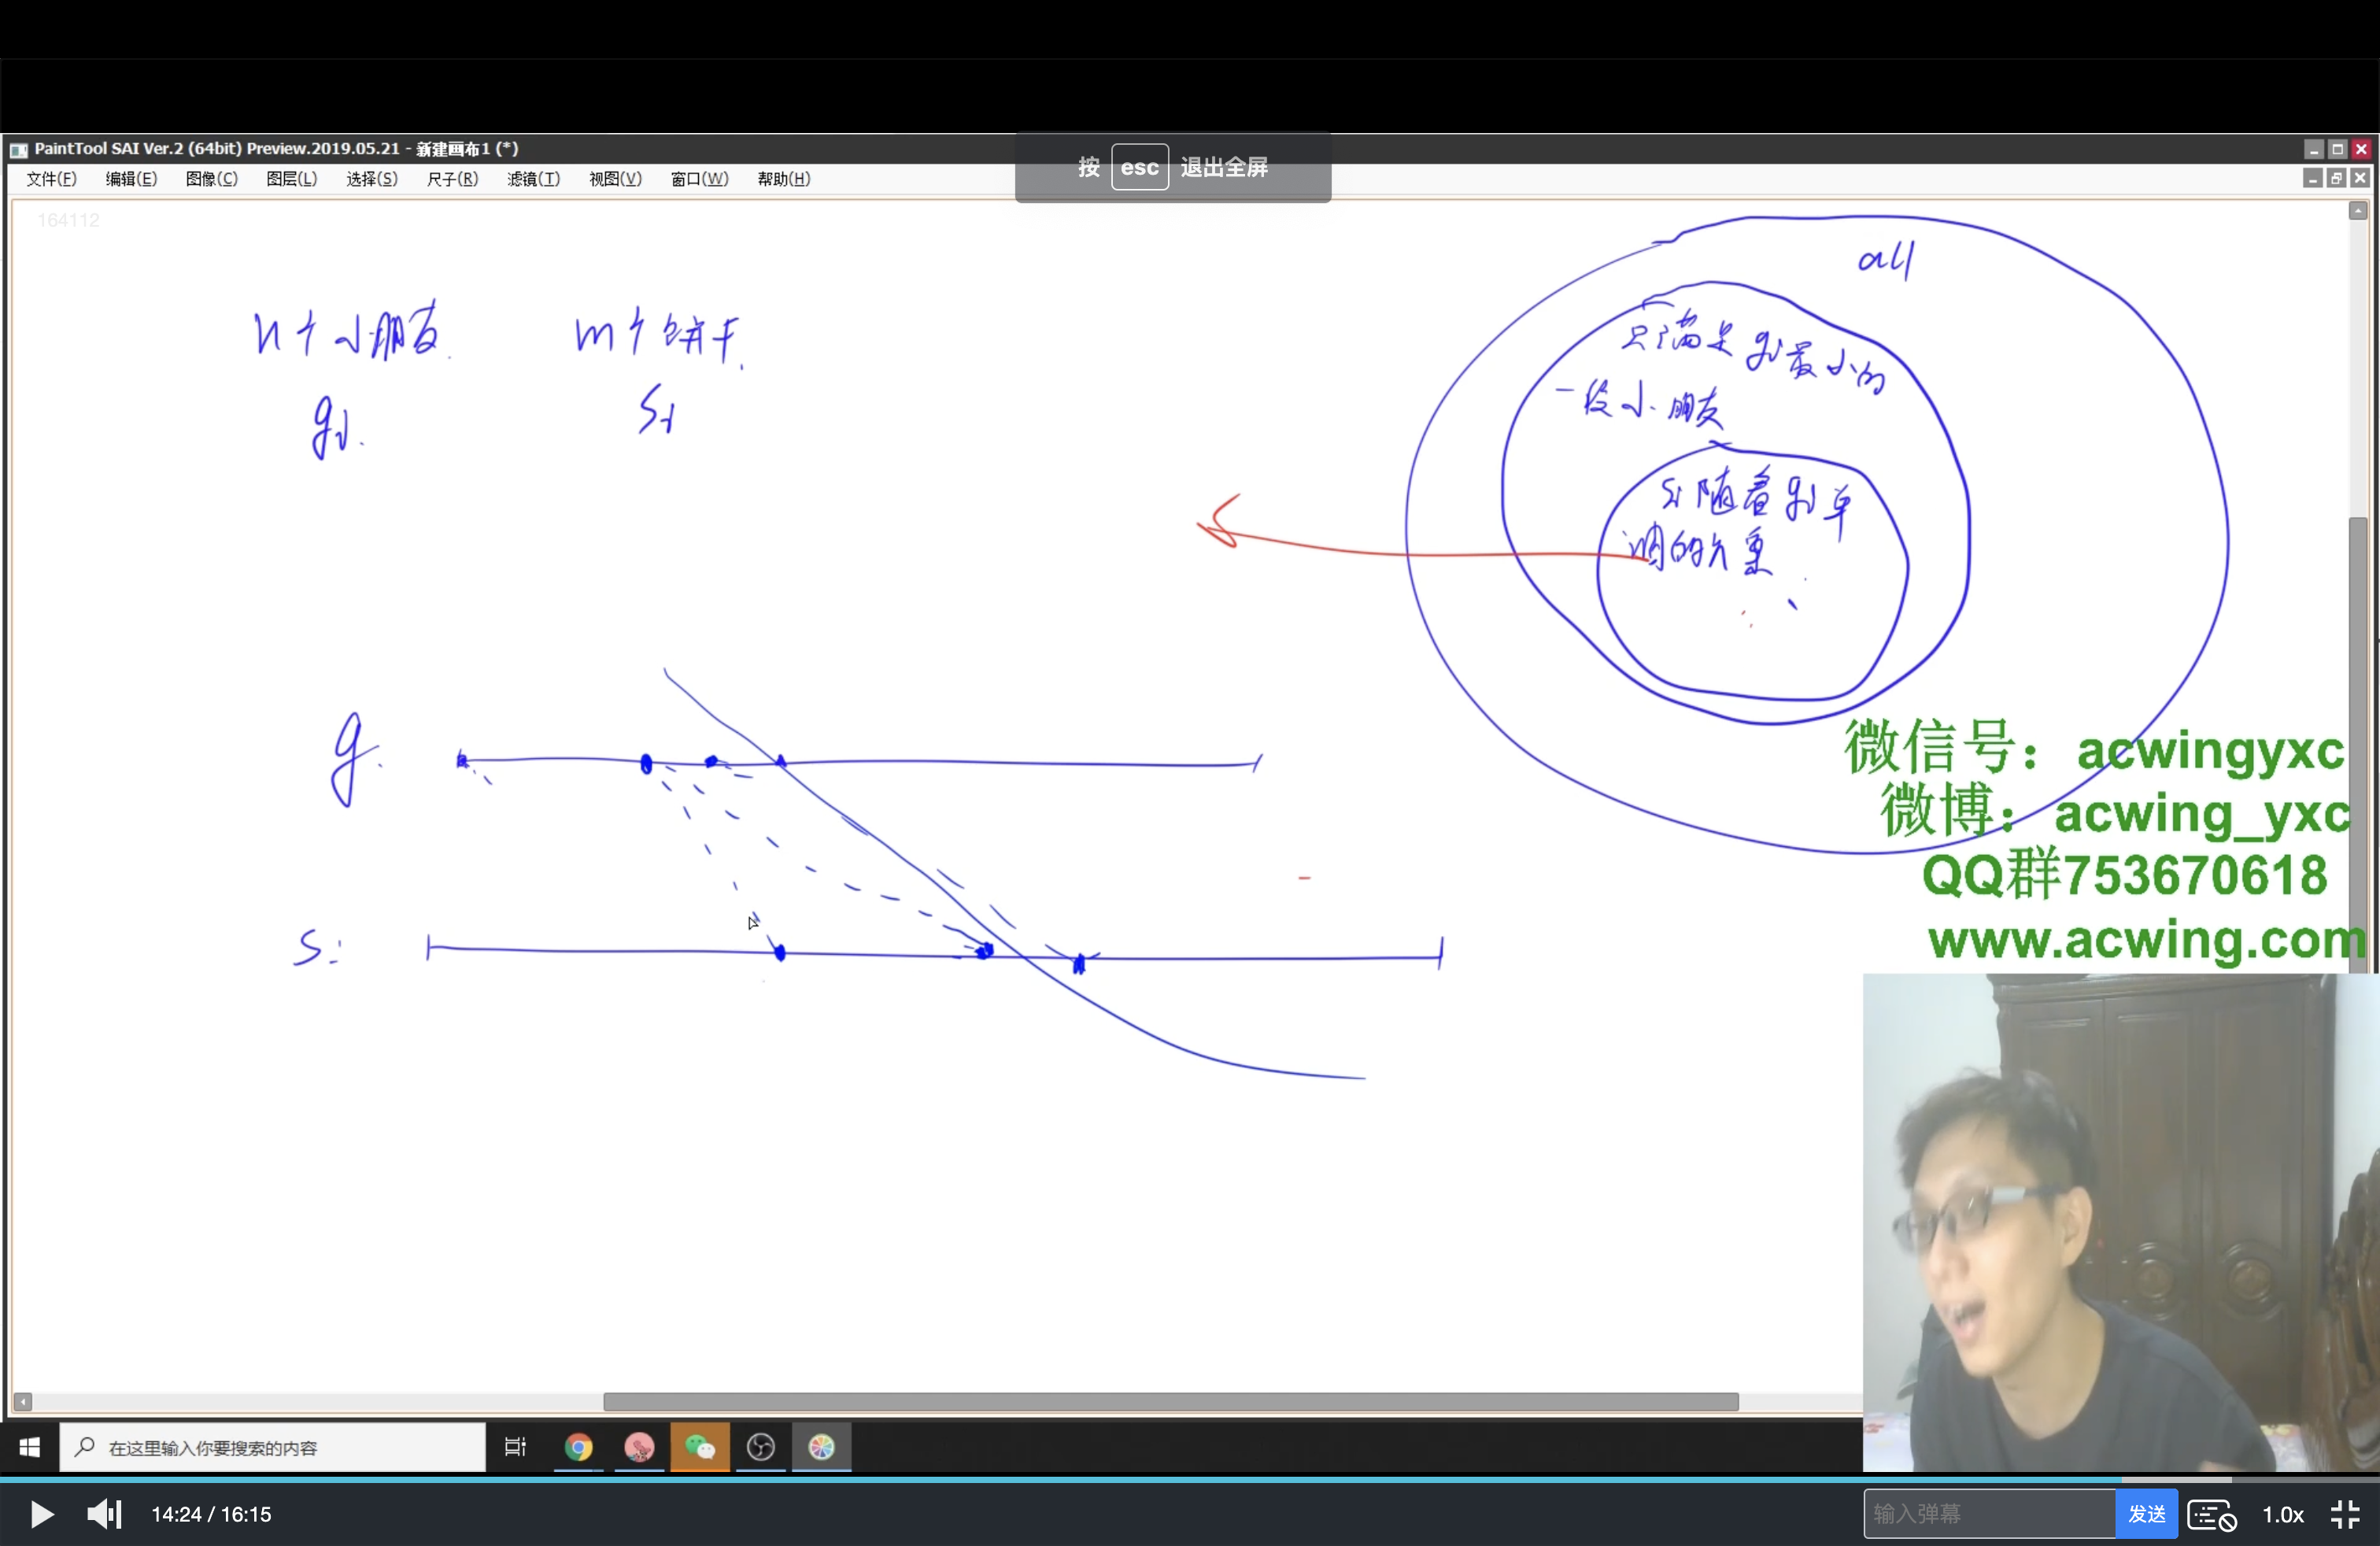 PaintTool SAI Ver.2 (64bit) Preview.2019.05.21 - 新建画布1 (*)
按 esc 退出全屏
文件(F) 编辑(E) 图像(C) 图层(L) 选择(S) 尺子(R) 滤镜(T) 视图(V) 窗口(W) 帮助(H)
164112
all
n个小朋友. m个饼干.
gi. si
只满足gi最小的
一段小朋友
si随着gi单
调的方案
g.
s:
微信号：acwingyxc
微博：acwing_yxc
QQ群753670618
www.acwing.com
在这里输入你要搜索的内容
14:24 / 16:15
输入弹幕 发送 1.0x